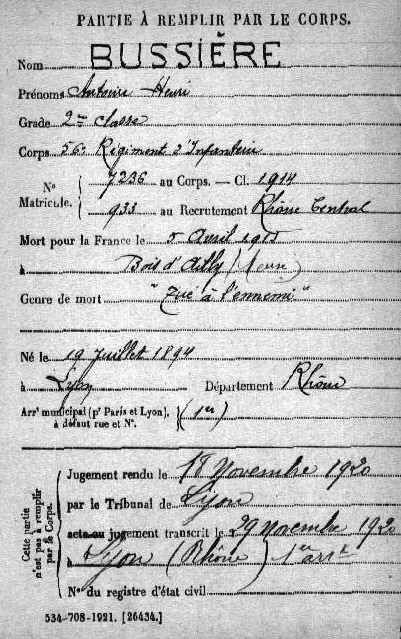 PARTIE À REMPLIR PAR LE CORPS.
Nom BUSSIÈRE
Prénoms Antoine Henri
Grade 2me classe
Corps 56e Régiment d'Infanterie
No Matricule. 7236 au Corps. — Cl. 1914
933 au Recrutement Rhône Central
Mort pour la France le 5 Avril 1915
à Bois d'Ailly (Meuse)
Genre de mort "Tué à l'ennemi"
Né le 19 Juillet 1894
à Lyon Département Rhône
Arrt municipal (pr Paris et Lyon), (1er)
à défaut rue et No.
Cette partie n'est pas à remplir par le Corps.
Jugement rendu le 18 Novembre 1920
par le Tribunal de Lyon
acte ou jugement transcrit le 29 Novembre 1920
à Lyon (Rhône) 1er arrt
No du registre d'état civil
534-708-1921. [26434.]